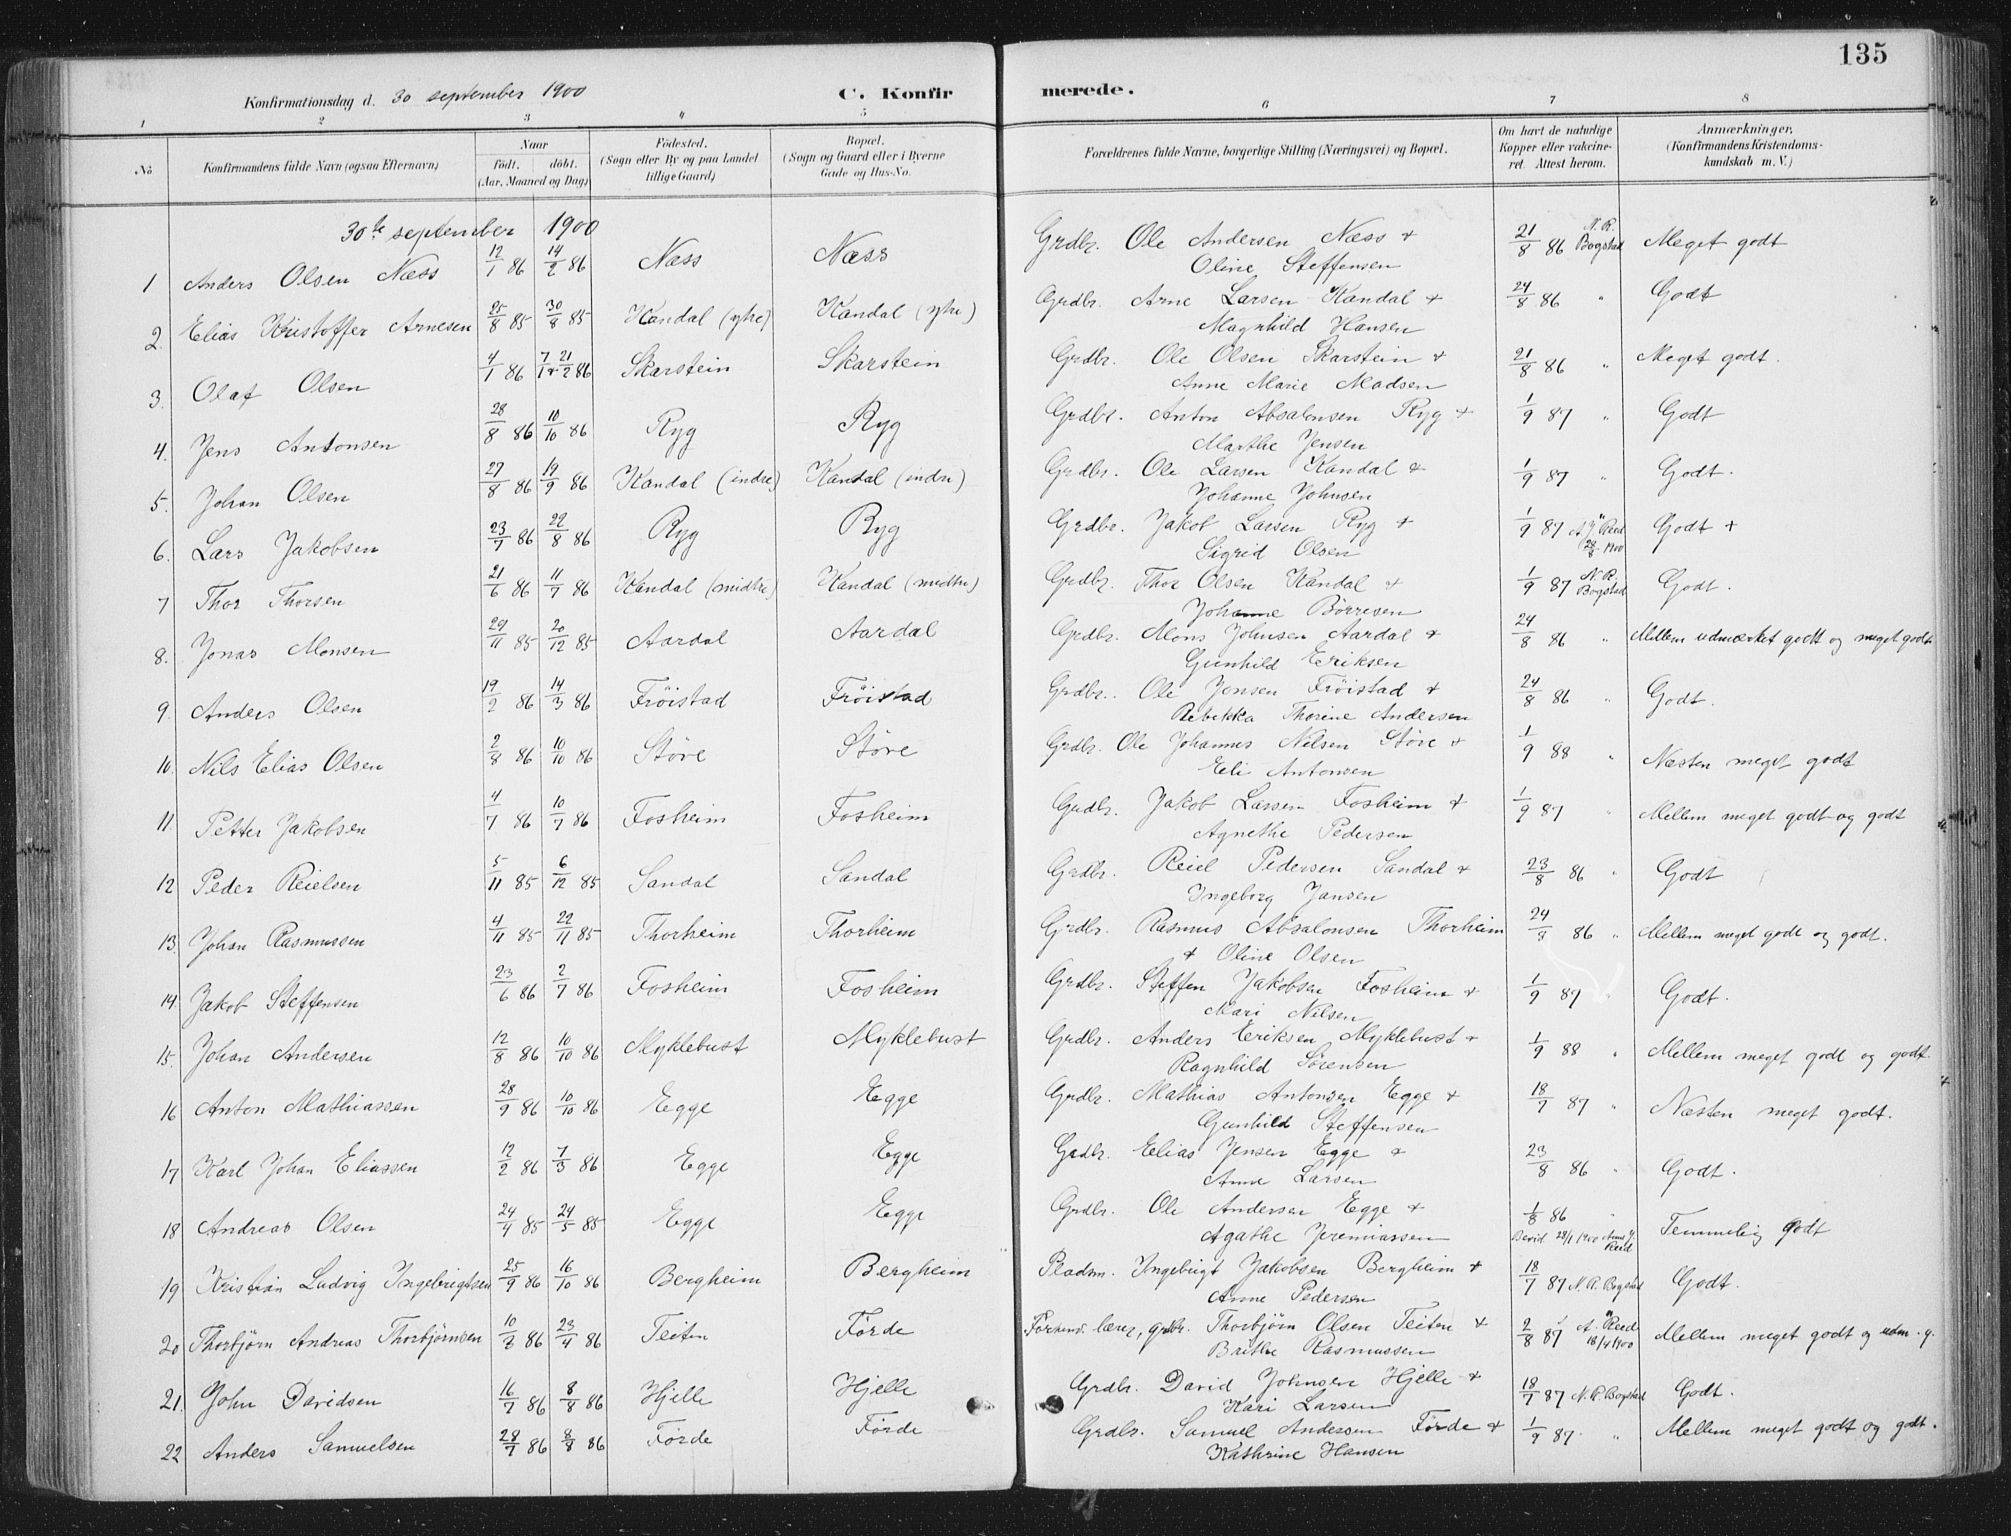 135
Konfirmationsdag d. 30 september 1900 C. Konfirmerede.
1 2 3 4 5 6 7 8
No Konfirmandens fulde Navn (ogsaa Efternavn) Naar födt. döbt. (Aar, Maaned og Dag) Födested. (Sogn eller By og paa Landet tillige Gaard) Bopæl. (Sogn og Gaard eller i Byerne Gade og Hus-No. Forældrenes fulde Navne, borgerlige Stilling (Næringsvei) og Bopæl. Om havt de naturlige Kopper eller vakcineret. Attest herom. Anmærkninger. (Konfirmandens Kristendomskundskab m. V.)
30te september 1900
1 Anders Olsen Næss 12/1 86 14/2 86 Næss Næss Grdbr. Ole Andersen Næss + 21/8 86 N. R. Bogstad Meget godt
Oline Steffensen
2. Elias Kristoffer Arnesen 25/8 85 30/8 85 Kandal (ytre) Kandal (ytre) Grdbr. Arne Larsen Kandal + 24/8 86 " Godt
Magnhild Hansen
3. Olaf Olsen 4/1 86 7/1 + 21/2 86 Skarstein Skarstein Grdbr. Ole Olsen Skarstein + 21/8 86 " Meget godt.
Anne Marie Madsen
4. Jens Antonsen 28/8 86 10/10 86 Ryg Ryg Grdbr. Anton Absalonsen Ryg + 1/9 87 " Godt
Marthe Jensen
5. Johan Olsen 27/8 86 19/9 86 Kandal (indre) Kandal (indre) Grdbr. Ole Larsen Kandal + 1/9 87 " Godt.
Johanne Johnsen
6. Lars Jakobsen 23/7 86 22/8 86 Ryg Ryg Grdbr. Jakob Larsen Ryg + 1/9 87 A. J. Reed 1900 Godt +
Sigrid Olsen
7 Thor Thorsen 21/6 86 11/7 86 Kandal (midtre) Kandal (midtre) Grdbr. Thor Olsen Kandal + 1/9 87 N. R. Bogstad Godt.
Johanne Börresen
8. Jonas Monsen 29/11 85 20/12 85 Aardal Aardal Grdbr. Mons Johnsen Aardal + 24/8 86 " Mellem udmærket godt og meget godt
Gunhild Eriksen
9. Anders Olsen 19/2 86 14/3 86 Fröistad Fröistad Grdbr. Ole Jonsen Fröistad + 24/8 86 " Godt.
Rebekka Thorine Andersen
10. Nils Elias Olsen 2/8 86 10/10 86 Störe Störe Grdbr. Ole Johannes Nilsen Störe + 1/9 88 " Næsten meget godt
Eli Antonsen
11. Petter Jakobsen 4/7 86 10/7 86 Fosheim Fosheim Grdbr. Jakob Larsen Fosheim + 1/9 87 " Mellem meget godt og godt
Agnethe Pedersen
12 Peder Reielsen 5/11 85 6/12 85 Sandal Sandal Grdbr. Reiel Pedersen Sandal + 23/8 86 " Godt
Ingeborg Jansen
13. Johan Rasmussen 4/11 85 22/11 85 Thorheim Thorheim Grdbr. Rasmus Absalonsen Thorheim 24/8 86 " Mellem meget godt og godt.
+ Oline Olsen
14. Jakob Steffensen 23/6 86 2/7 86 Fosheim Fosheim Grdbr. Steffen Jakobsen Fosheim + 1/9 87 " Godt.
Mari Nilsen
15. Johan Andersen 12/8 86 10/10 86 Myklebust Myklebust Grdbr. Anders Eriksen Myklebust + 1/9 88 " Mellem meget godt og godt.
Ragnhild Sörensen
16 Anton Mathiassen 28/9 86 10/10 86 Egge Egge Grdbr. Mathias Antonsen Egge + 18/7 87 " Næsten meget godt.
Gunhild Steffensen
17 Karl Johan Eliassen 12/2 86 7/3 86 Egge Egge Grdbr. Elias Jensen Egge + 23/8 86 " Godt.
Anne Larsen
18 Andreas Olsen 24/4 85 24/5 85 Egge Egge Grdbr. Ole Andersen Egge + 1/8 86 " Temmelig godt
Agathe Jeremiassen Bevid 28/1 1900 Reed
19 Kristian Ludvig Ingebrigtsen 25/9 86 16/10 86 Bergheim Bergheim Pladsm. Ingebrigt Jakobsen Bergheim + 18/7 87 N. R. Bogstad Godt.
Anne Pedersen
20 Thorbjörn Andreas Thorbjörnsen 10/3 86 23/4 86 Teiten Förde lærer, grdbr. Thorbjörn Olsen Teiten + 2/8 87 A. Reed 18/4 1900 Mellem meget godt og udm. g.
Brithe Rasmussen
21. John Davidsen 16/7 86 8/8 86 Hjelle Hjelle Grdbr. David Johnsen Hjelle + 18/7 87 N. R. Bogstad Godt.
Kari Larsen
22 Anders Samuelsen 28/7 86 8/8 86 Förde Förde Grdbr. Samuel Andersen Förde + 1/9 87 " Mellem meget godt og godt.
Kathrine Hansen